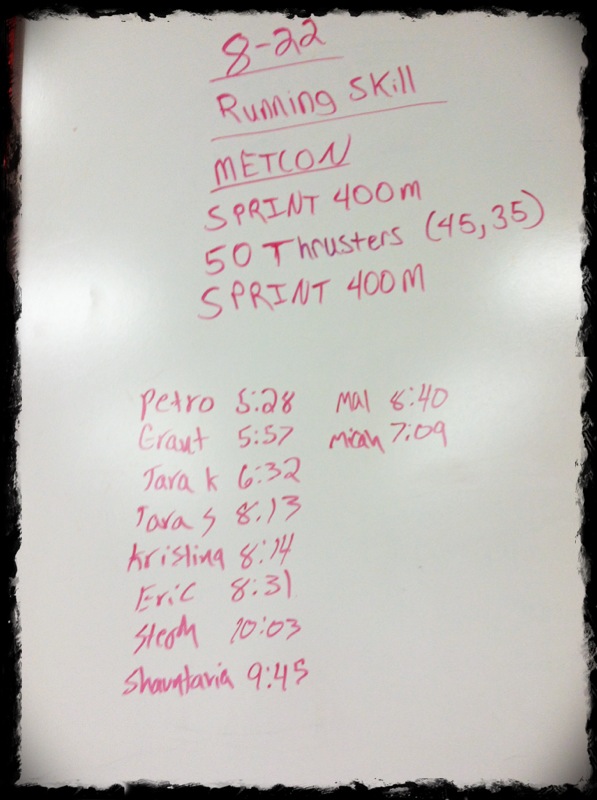 8-22
Running Skill
METCON
SPRINT 400m
50 Thrusters (45,35)
SPRINT 400M
Petro 5:28
Grant 5:57
Tara K 6:32
Tara S 8:13
Kristina 8:14
Eric 8:31
Steph 10:03
Shauntavia 9:45
Mal 8:40
Micah 7:09